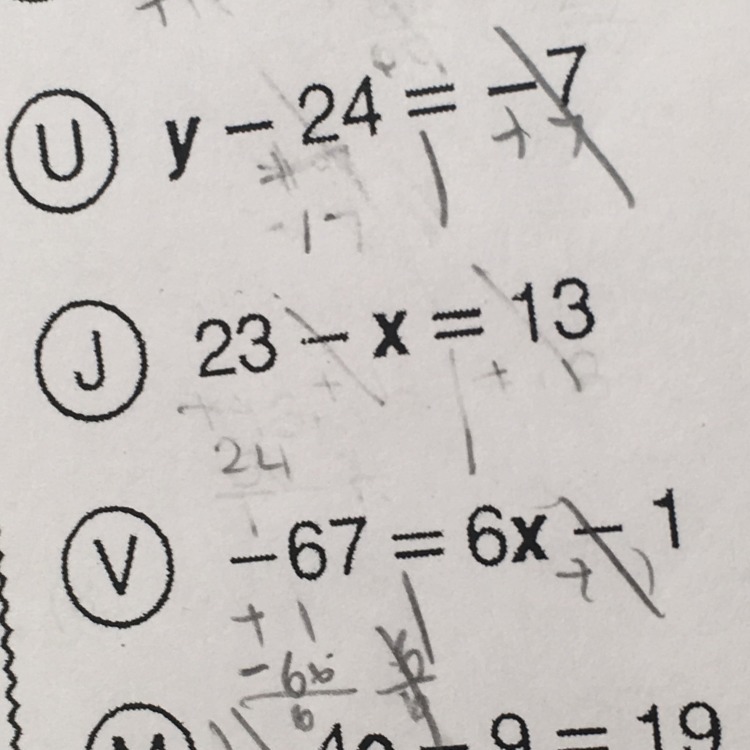 U y - 24 = -7
+ 7
-17
J 23 - x = 13
+
24
V -67 = 6x - 1
+ 1 + 1
-66 6
6
- 9 = 19